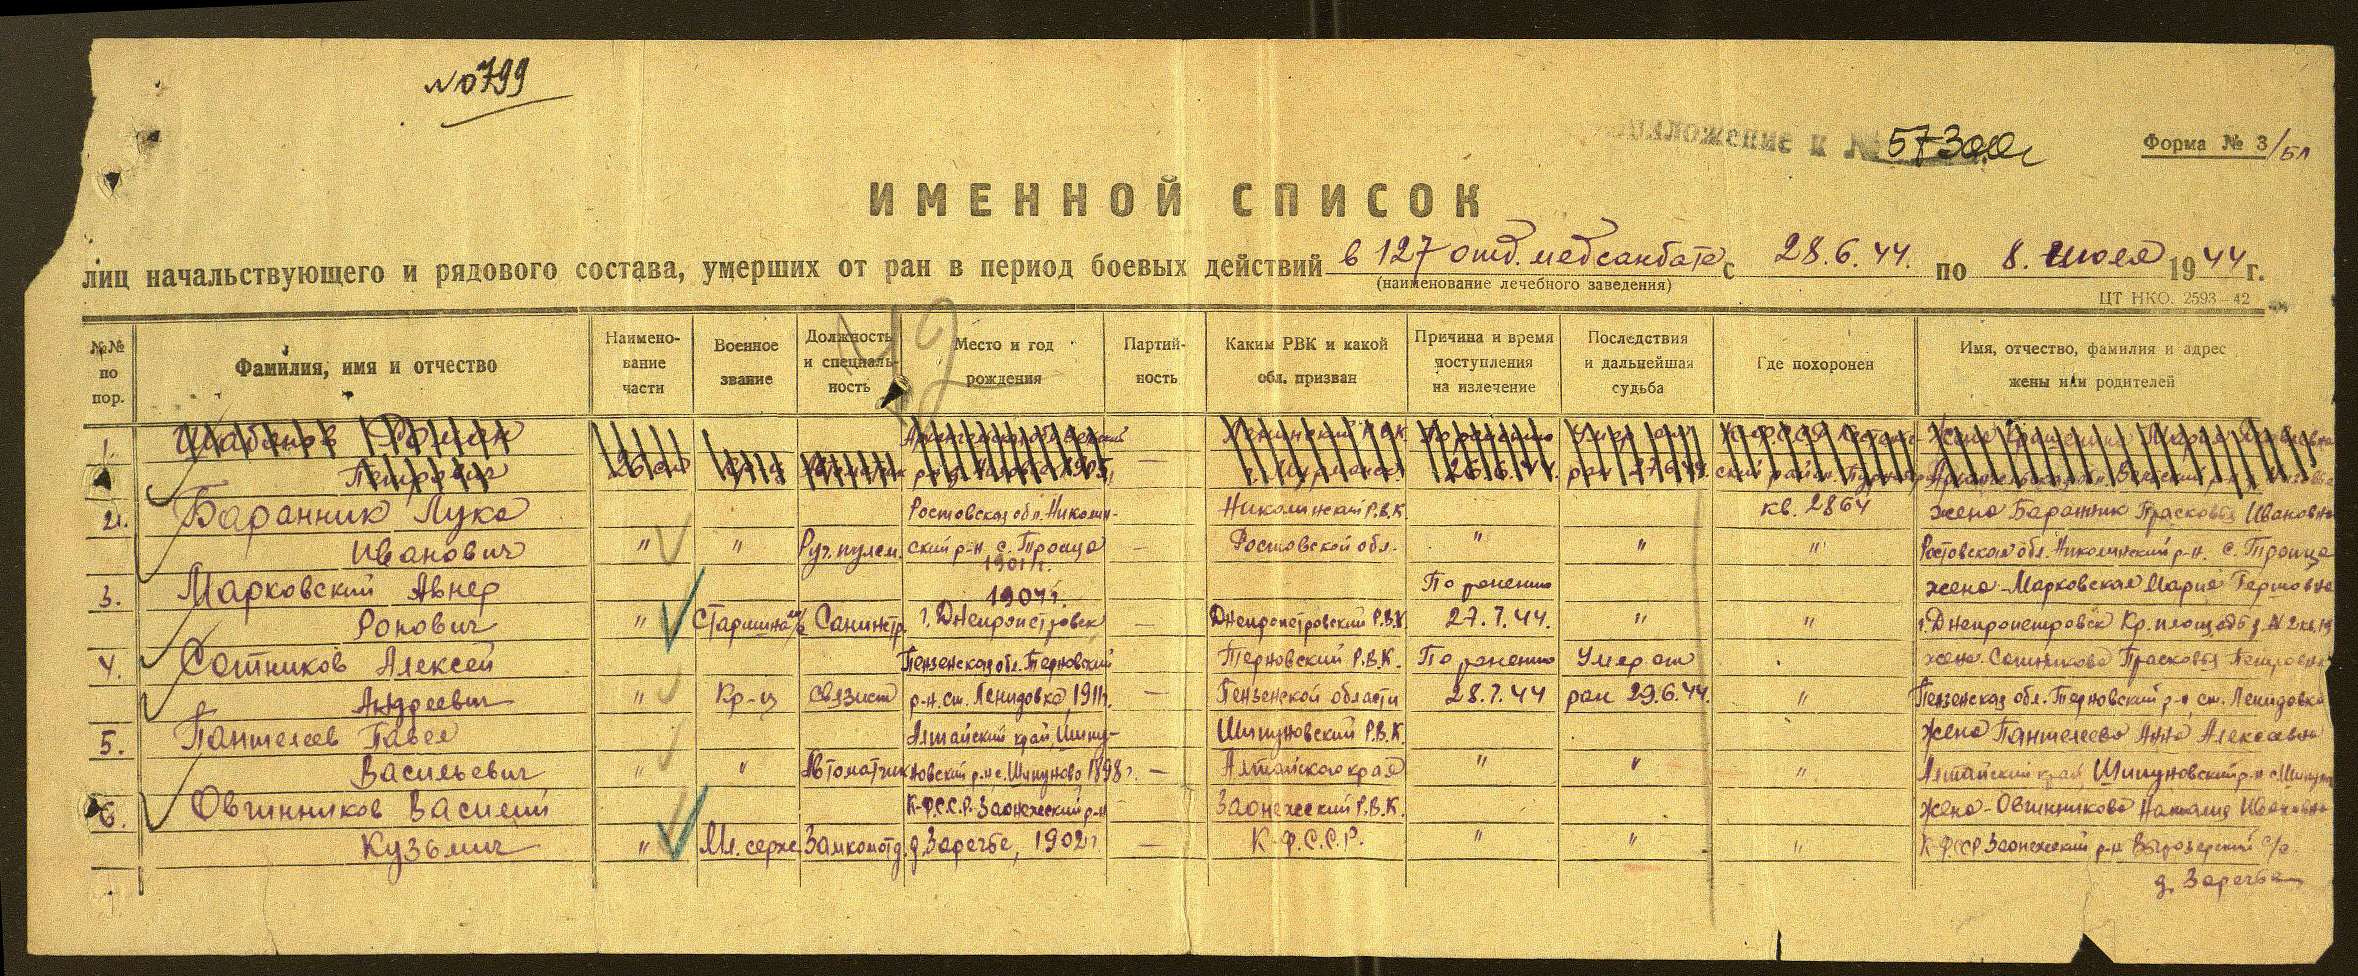 № 0799
Приложение к № 57300с
Форма № 3/БЛ
ИМЕННОЙ СПИСОК
лиц начальствующего и рядового состава, умерших от ран в период боевых действий в 127 отд. медсанбате с 28.6.44. по 8. июля 1944 г.
(наименование лечебного заведения)
ЦТ НКО. 2593—42
№№ по пор.
Фамилия, имя и отчество
Наименование части
Военное звание
Должность и специальность
Место и год рождения
Партийность
Каким РВК и какой обл. призван
Причина и время поступления на излечение
Последствия и дальнейшая судьба
Где похоронен
Имя, отчество, фамилия и адрес жены или родителей
49
1. Шабанов Роман
Петрович
По ранению 26.6.44. Умер от ран 27.6.44.
2. Баранник Лука Ростовская обл. Николин- Николинский Р.В.К. кв. 2864 жена Баранник Прасковья Ивановна
Иванович " " Руч. пулем. ский р-н с. Троица — Ростовской обл. " " " Ростовская обл. Николинский р-н. с. Троица
1901 г.
3. Марковский Авнер 1907 г. По ранению жена - Марковская Мария
Ронович " Старшина Санинстр. г. Днепропетровск — Днепропетровский Р.В.К 27.7.44. " " г. Днепропетровск Кр. площадь
4. Сотников Алексей Пензенская обл. Терновский Терновский Р.В.К. По ранению Умер от жена. Сотникова Прасковья Петровна
Андреевич " Кр-ц связист р-н. ст. Ленидовка, 1911 г. — Пензенской области 28.7.44 ран 29.6.44. " Пензенская обл. Терновский р-н, ст. Ленидовка
5. Пантелеев Павел Алтайский край, Шипу- Шипуновский Р.В.К. жена Пантелеева Анна Алексеевна
Васильевич " " Автоматчик новский р-н с. Шипуново 1898 г. — Алтайского края " " " Алтайский край, Шипуновский р-н с. Шипуно
6. Овчинников Василий К-Ф.С.С.Р. Заонежский р-н Заонежский Р.В.К. жена - Овчинникова Наталия Ивановна
Кузьмич " Мл. серж. Замкомотд. д. Заречье, 1902 г — К-Ф.С.С.Р. " " " К-Ф.ССР Заонежский р-н Вырозерский с/с.
д. Заречье